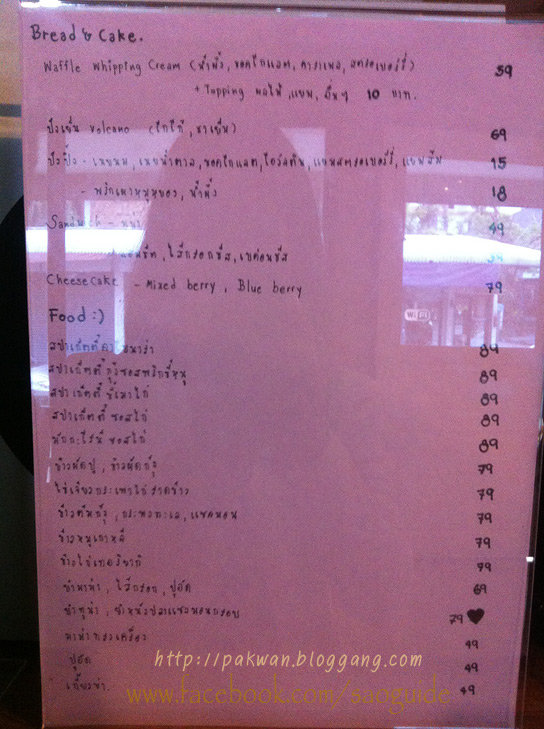 Bread & Cake.
Waffle Whipping Cream (น้ำผึ้ง, ชอคโกแลต, คาราเมล, สตรอเบอร์รี่) 59
+ Topping ผลไม้, แยม, อื่นๆ 10 บาท.
ปังเย็น volcano (โกโก้, ชาเย็น) 69
ปังปิ้ง - เนยนม, เนยน้ำตาล, ชอคโกแลต, โอวัลติน, แยมสตรอเบอร์รี่, แยมส้ม 15
- พริกเผาหมูหยอง, น้ำผึ้ง 18
Sandwich - 49
ไส้กรอกชีส, เบค่อนชีส
Cheese cake - Mixed berry, Blue berry 79
Food :)
WiFi
สปาเก็ตตี้ 89
สปาเก็ตตี้ กุ้งซอสพริกขี้หนู 89
สปาเก็ตตี้ ขี้เมาไก่ 89
สปาเก็ตตี้ ซอสไก่ 89
มักกะโรนี ซอสไก่ 89
ข้าวผัดปู, ข้าวผัดกุ้ง 79
ไข่เจียวกระเพาไก่ราดข้าว 79
ข้าวต้มกุ้ง, กระพง, ทะเล, แซลมอน 79
ข้าวหมูเกาหลี 79
ข้าวไก่เทอริยากิ 79
ยำมาม่า, ไส้กรอก, ปูอัด 69
ยำทูน่า, ยำหนังปลาแซลมอนกรอบ 79 ♥
มาม่าทรงเครื่อง 49
ปูอัด 49
เกี๊ยวซ่า 49
http://pakwan.bloggang.com
www.facebook.com/saoguide